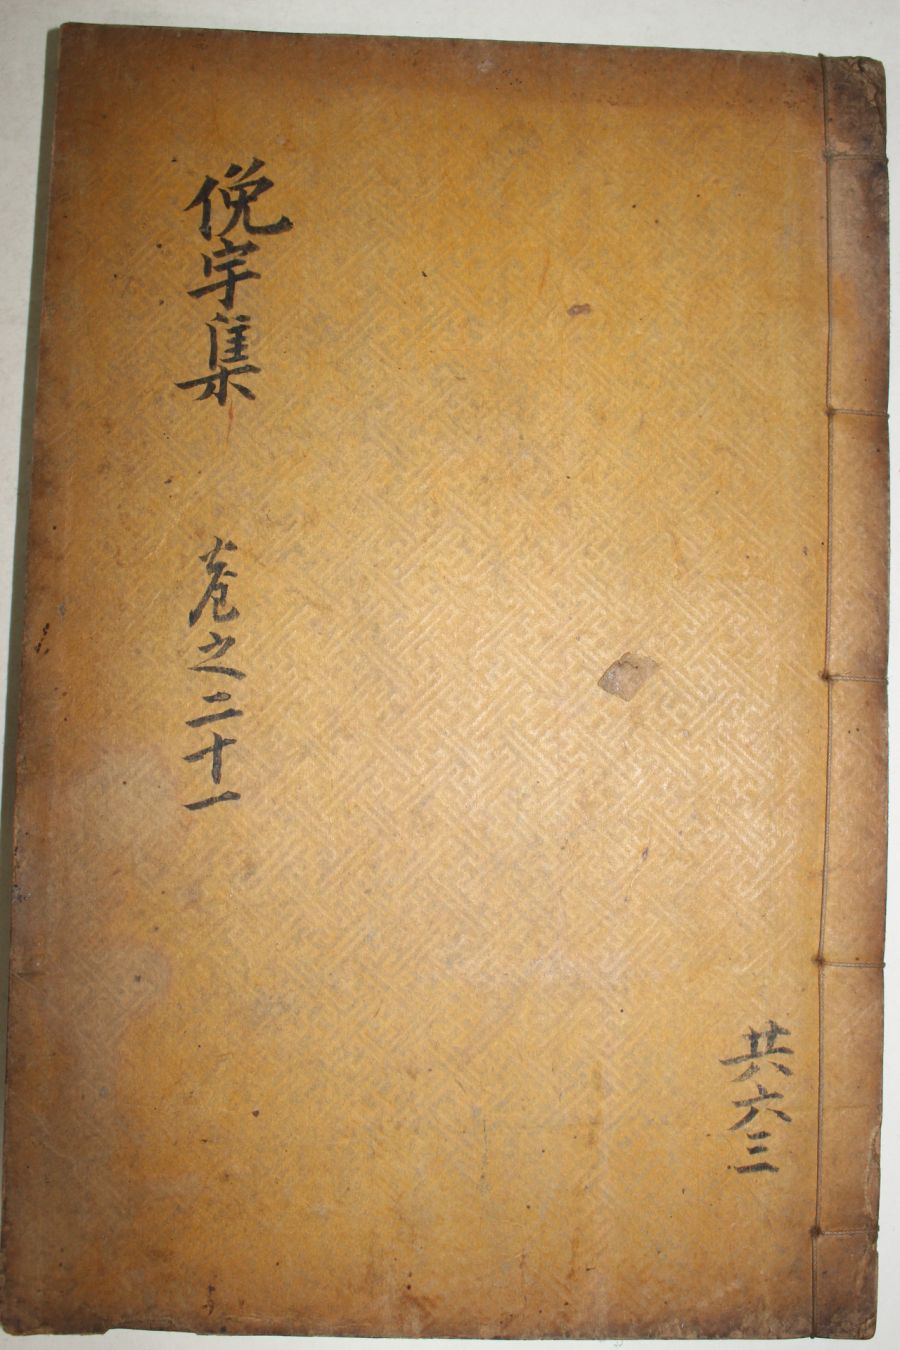 俛宇集 卷之二十一
共六三